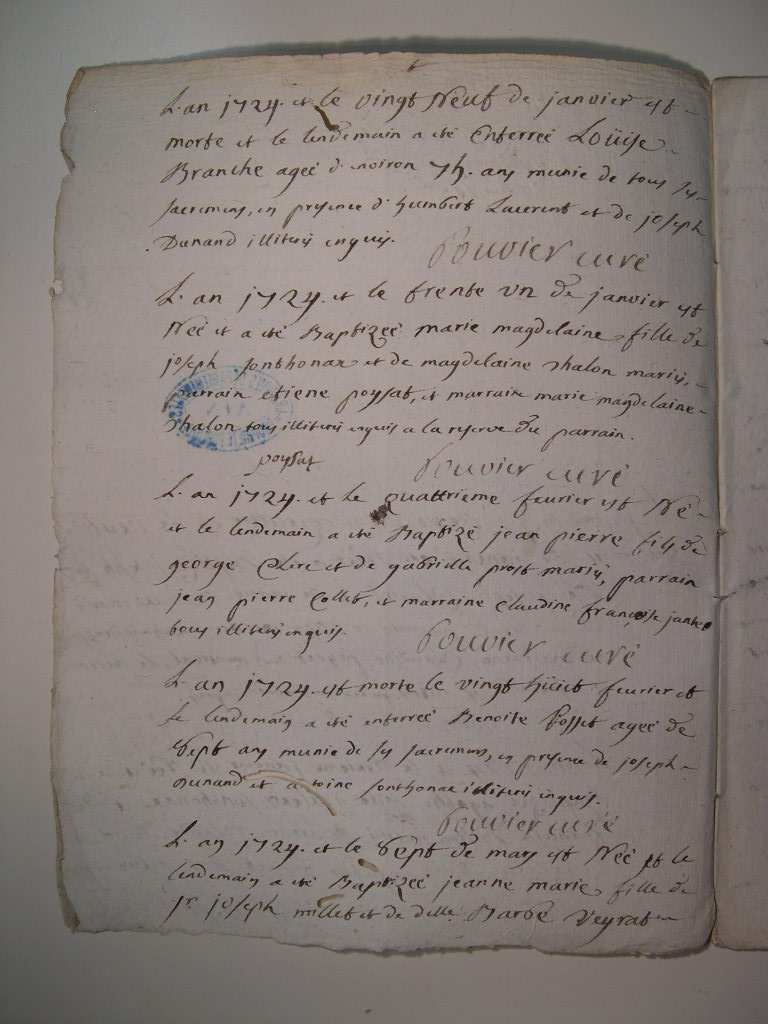 L'an 1724. et le vingt Neuf de janvier est
morte et le lendemain a eté enterreé Loüise
Branche ageé d'enoiron 74. ans munie de tous ses
sacremens, en presence d'humbert Laurent et de joseph
Dunand illiterés enquis.
Bouvier curé
L'an 1724. et le trente un de janvier est
Neé et a eté Baptizeé marie magdelaine fille de
joseph sonthonax et de magdelaine Chalon mariés,
parrain etiene poysat, et marraine marie magdelaine
Chalon tous illiterés enquis a la reserve du parrain.
poysat
Bouvier curé
L'an 1724. et le quattrieme fevrier est Né
et le lendemain a eté Baptizé jean pierre fils de
george Clere et de gabrielle prost mariés, parrain
jean pierre Collet, et marraine claudine françoise
tous illiterés enquis.
Bouvier curé
L'an 1724. est morte le vingt hüict fevrier et
le lendemain a eté enterreé Benoite ageé de
Sept ans munie de ses sacremens, en presence de joseph
Dunand et a toine sonthonax illiterés enquis.
Bouvier curé
L'an 1724. et le Sept de mars est Neé et le
lendemain a eté Baptizeé jeanne marie fille de
Sr joseph millet et de delle Barbe Veyrat